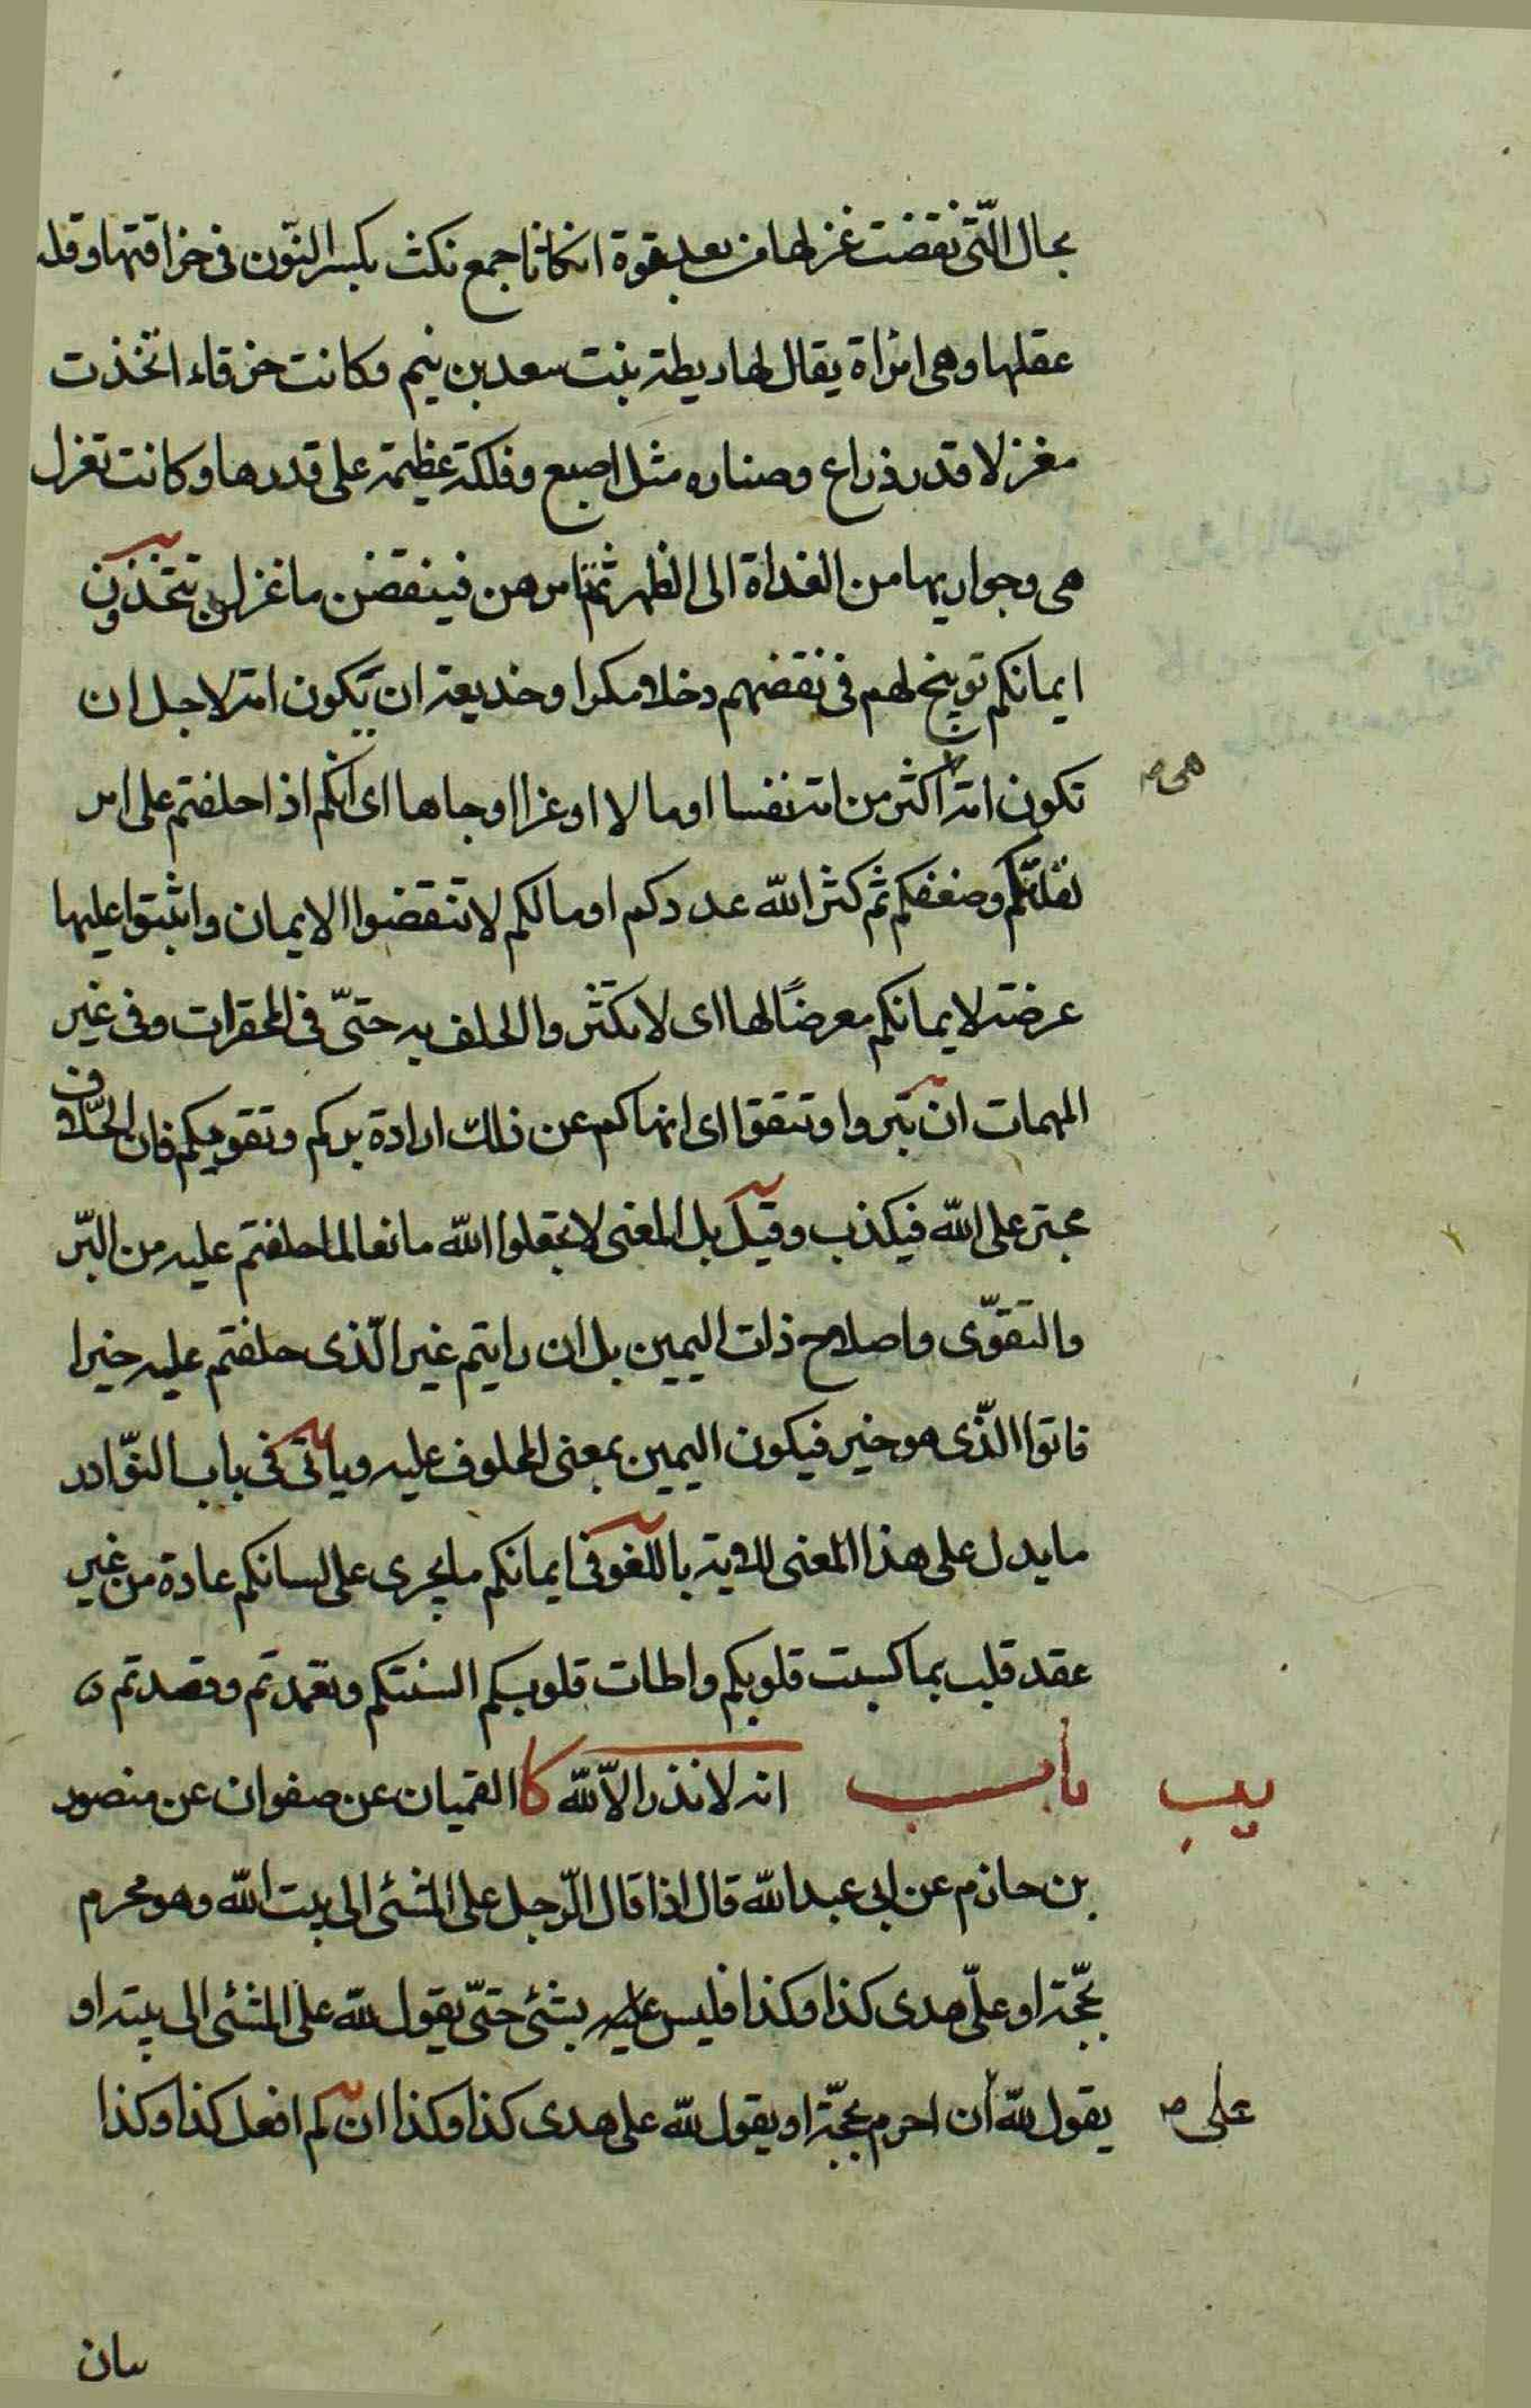 بحال الّتى نقضت غزلها من بعد قوة انكاثا جمع نكث بكسر النّون فى خراقتها وقله
عقلها وهى امراة يقال لها ريطة بنت سعد بن تيم وكانت خرقاء اتخذت
مغزلا قدر ذراع وصناره مثل اصبع وفلكة عظيمة على قدرها وكانت تغزل
هى وجواريها من الغداة الى الظهر ثم تامرهن فينقضن ما غزلن تتخذون
ايمانكم توبيخ لهم فى نقضهم دخلا مكرا وخديعة ان تكون امة لاجل ان
تكون امة اكثر من امة نفسا او مالا او عزا او جاها اى انكم اذا حلفتم على امر
هى صح
لقلتكم وضعفكم ثم كثر الله عددكم او مالكم لا تنقضوا الايمان واثبتوا عليها
عرضة لايمانكم معرضًا لها اى لا تكثروا الحلف به حتىّ فى المحقرات وفى غير
المهمات ان تبروا وتتقوا اى انهاكم عن ذلك ارادة بركم وتقويكم فان الحلّاف
مجتر على الله فيكذب وقيل بل المعنى لا تجعلوا الله مانعا لما حلفتم عليه من البّر
والتقوّى واصلاح ذات اليمين بل ان رايتم غير الّذى حلفتم عليه خيرا
فاتوا الّذى هو خير فيكون اليمين بمعنى المحلوف عليه وياتى فى باب النوّادر
ما يدل على هذا المعنى للاية باللغو فى ايمانكم ما يجرى على لسانكم عادة من غير
عقد قلب بما كسبت قلوبكم واطات قلوبكم السنتكم وتعمدتم وقصدتم
يب باب انه لا نذر الّا لله كا القميان عن صفوان عن منصور
بن حازم عن ابى عبد الله قال اذا قال الّرجل على المشئى الى بيت الله وهو محرم
بحّجة او علّى هدى كذا وكذا فليس عليه بشئى حتىّ يقول لله على المشئى الى بيته او
يقول لله ان احرم بحجّة او يقول لله على هدى كذا وكذا ان لم افعل كذا وكذا
على صح
بيان